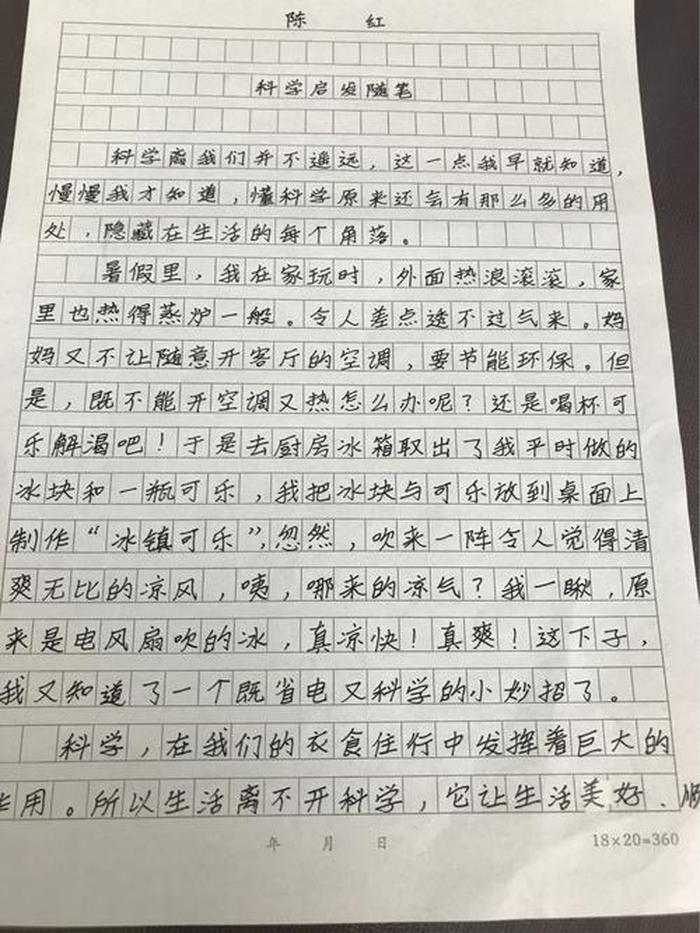 陈 红
科学启发随笔
科学离我们并不遥远，这一点我早就知道，
慢慢我才知道，懂科学原来还会有那么多的用
处，隐藏在生活的每个角落。
暑假里，我在家玩时，外面热浪滚滚，家
里也热得蒸炉一般。令人差点透不过气来。妈
妈又不让随意开客厅的空调，要节能环保。但
是，既不能开空调又热怎么办呢？还是喝杯可
乐解渴吧！于是去厨房冰箱取出了我平时做的
冰块和一瓶可乐，我把冰块与可乐放到桌面上
制作“冰镇可乐”，忽然，吹来一阵令人觉得清
爽无比的凉风，咦，哪来的凉气？我一瞅，原
来是电风扇吹的冰，真凉快！真爽！这下子，
我又知道了一个既省电又科学的小妙招了。
科学，在我们的衣食住行中发挥着巨大的
作用。所以生活离不开科学，它让生活美好、
年 月 日 18×20=360